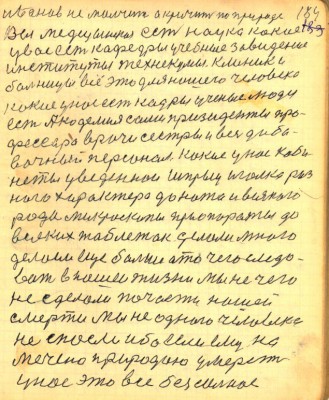 184
иванов не молчит а кричит по природе
Вы медицина ест наука какие
у вас ест кафедры учебные заведение
институты технекумы. клиники
болницы всё это для нашего человека
какие у нас ест кадры ученые люди
ест Академия сами призиденты про-
фессара врачи сестры и весь доба-
вочный персонал. Какие у нас каби
неты уведенной шприц иголка раз
ного характера до ната и всякого
рода микраскопы приопораты до
всяких таблеток сделали много
делаем еще больше а то чего следо-
вать в нашей жизни мы не чего
не сделали по части нашей
смерти мы не одного человека
не спасли ибо если ему на
мечено природою умереть
у нас это все безсилное